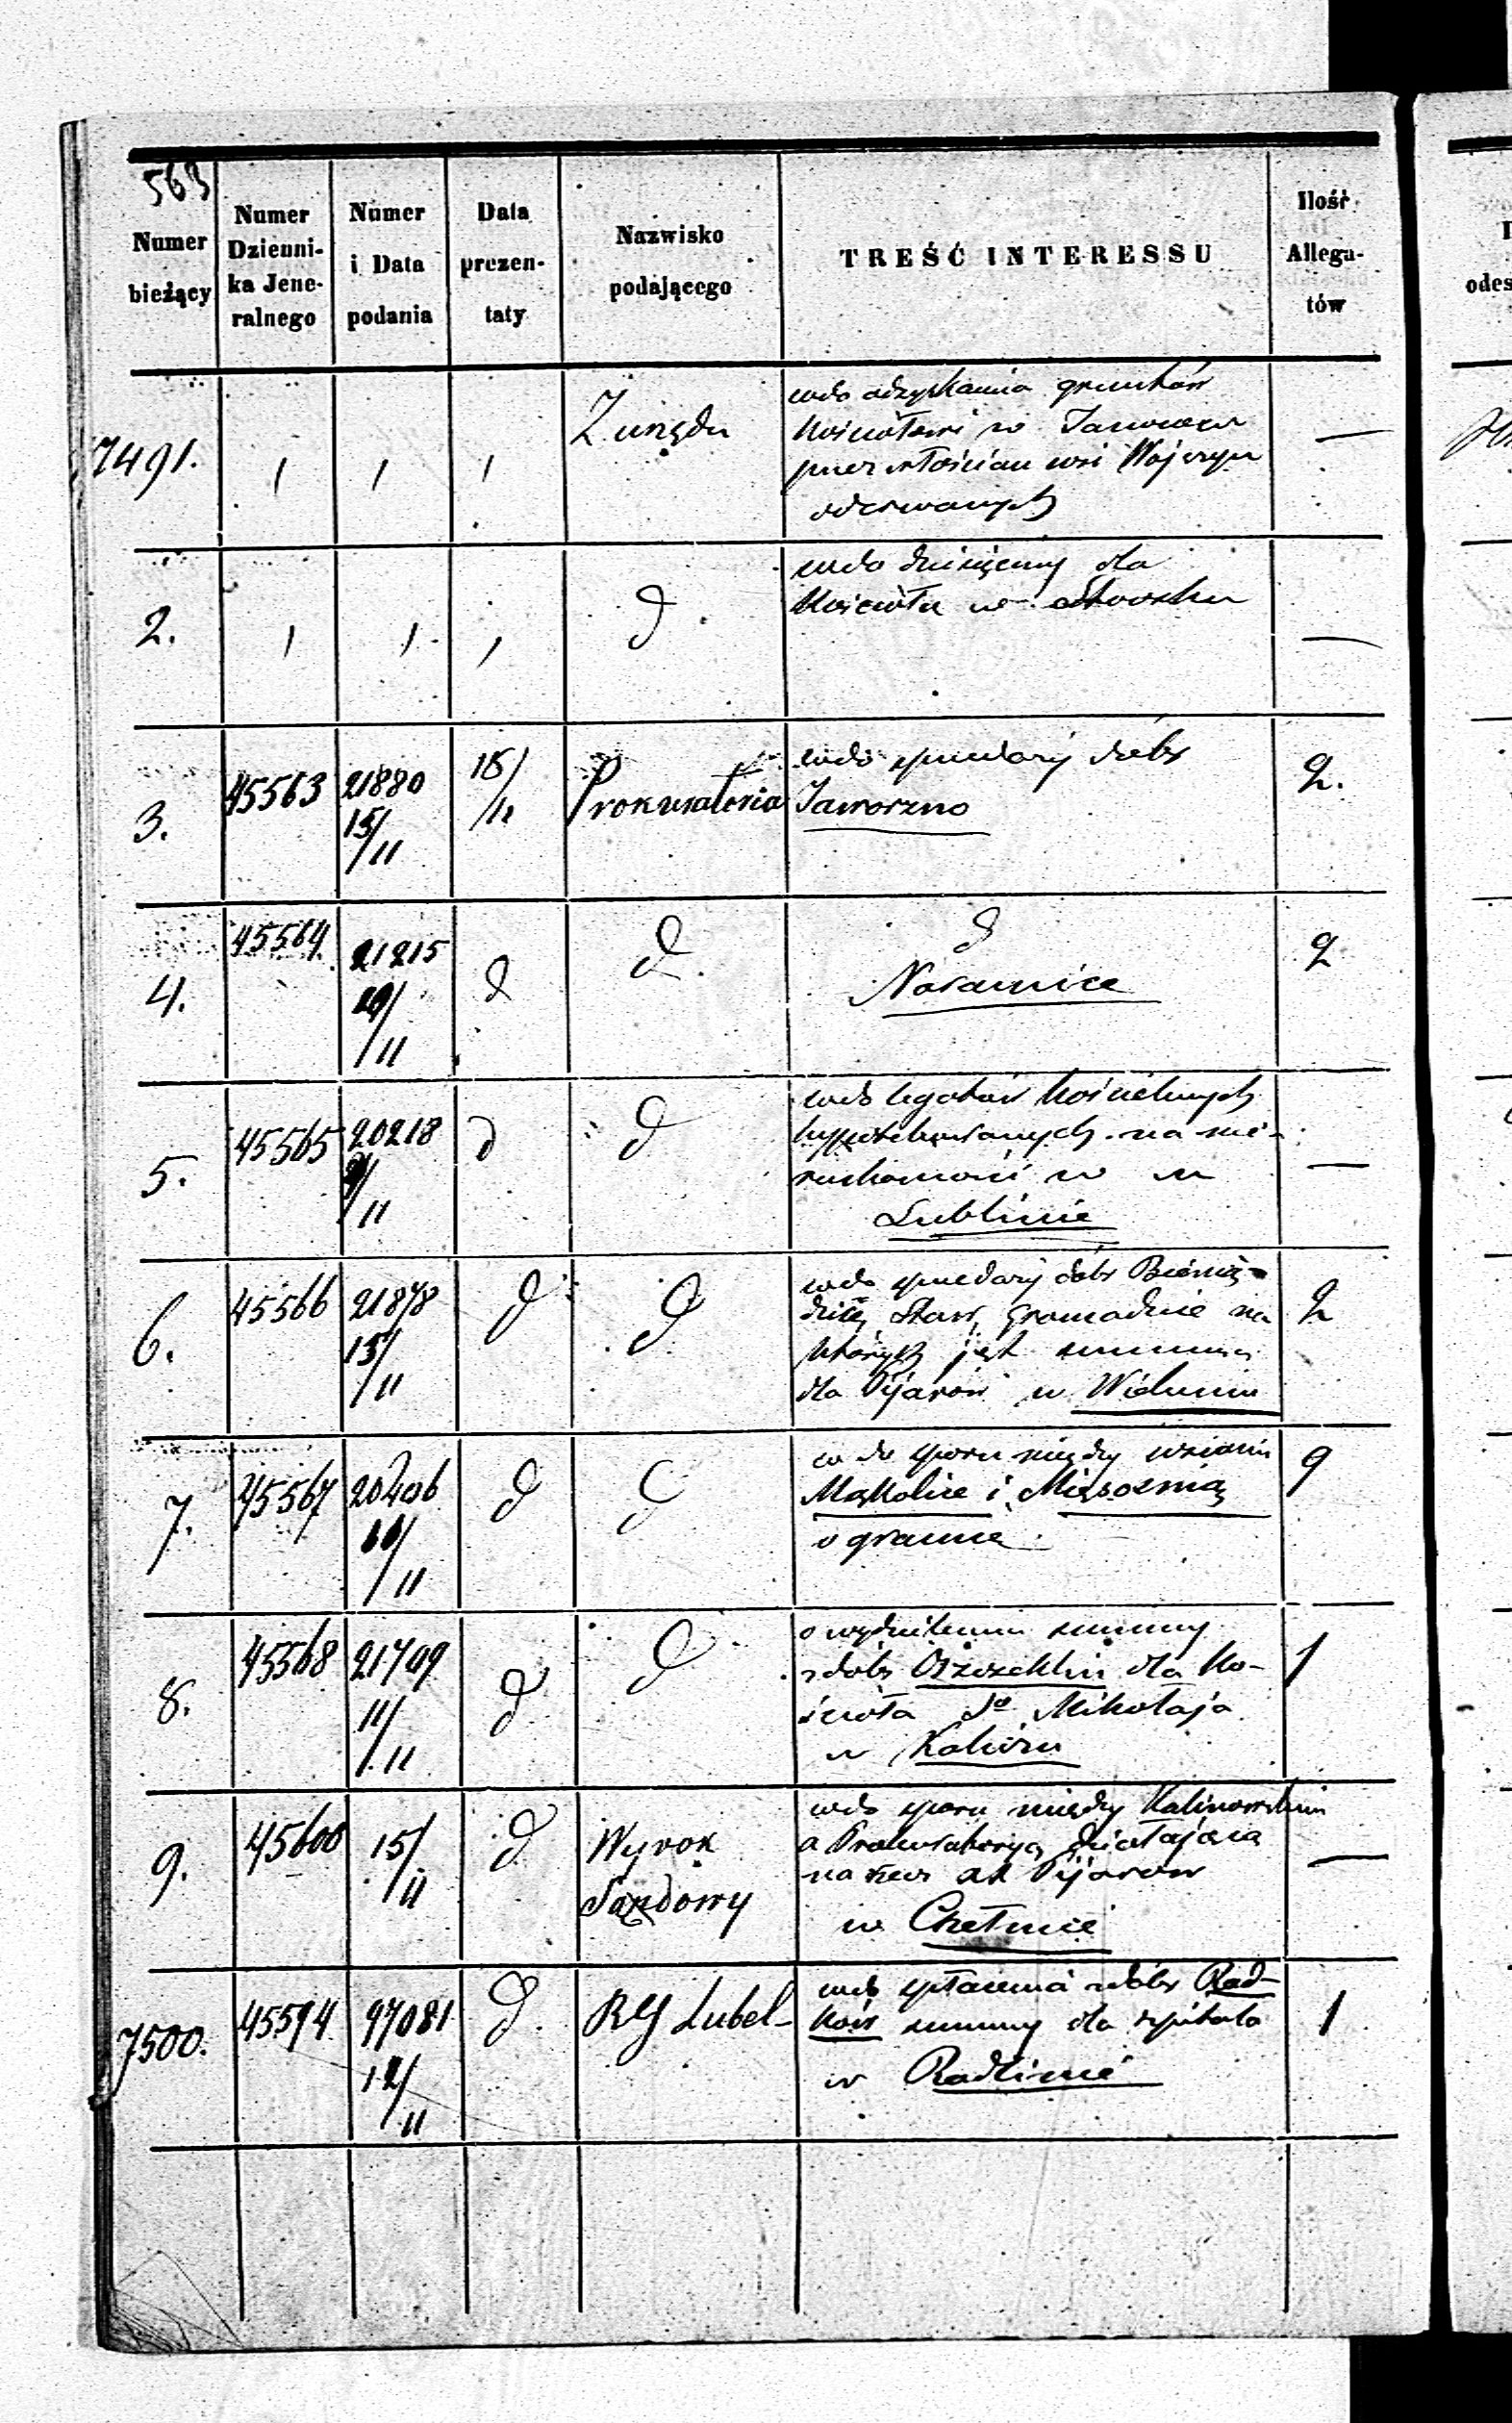 563
Numer bieżący
Numer Dzienni-
ka Jene-
ralnego
Numer i Data podania
Data prezen-
taty
Nazwisko podającego
TREŚĆ INTERESSU
Ilość Allega-
tów
7491.
Z urzędu
wdo odzyskania gruntów
Kościołowi w Janowcu
przez włościan wsi Wojszyn
oderwanych
—
2.
d
wdo dziesięciny dla
Kościoła w
—
3.
45563
21880
15/11
16/11
Prokuratoria
wdo sprzedaży dóbr
Jaworzno
2.
4.
45564
21215
10/11
d
d
d
Naramice
2
5.
45565
20218
9/11
d
d
wdo legatów Kościelnych
hypotekowanych na nie-
ruchomości w m
Lublinie
—
6.
45566
21878
15/11
d
d
wdo sprzedaży dóbr
Gromadzice na
których jest summa
dla Pijarów w Wieluniu
2
7.
45567
20406
10/11
d
d
w do sporu między wsiami
Mąkolice i
o granice
9
8.
45568
21749
11/11
d
d
o wydzielenie summy
z dóbr dla Ko-
ścioła So Mikołaja
w Kaliszu
1
9.
45600
15/11
d
Wyrok
Sądowy
wdo sporu między Kalinowskim
a Prokuratoryą działającą
na rzecz XX Pijarów
w Chełmie
—
7500.
45594
97081
12/11
d.
RG Lubel-
wdo spłacenia z dóbr Rad-
ków summy dla szpitala
w Radlinie
1